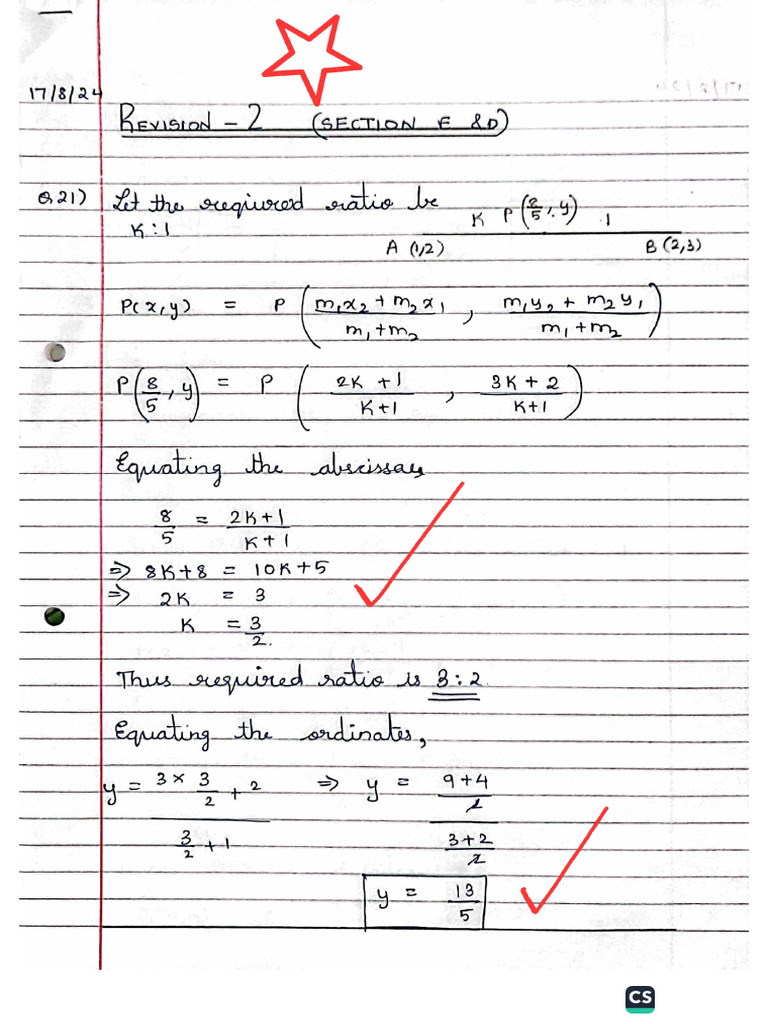 17/8/24
REVISION - 2 (SECTION E &D)
Q21) Let the reqiured ratio be
K : 1
K P(8/5, y) 1
A (1,2) B (2,3)
P(x,y) = P ( (m₁x₂ + m₂x₁)/(m₁+m₂) , (m₁y₂ + m₂y₁)/(m₁+m₂) )
P(8/5, y) = P ( (2K + 1)/(K+1) , (3K + 2)/(K+1) )
Equating the abscissae,
8/5 = (2K+1)/(K+1)
⇒ 8K+8 = 10K+5
⇒ 2K = 3
K = 3/2.
Thus required ratio is 3:2.
Equating the ordinates,
y = (3 × 3/2 + 2)/(3/2 + 1) ⇒ y = ((9+4)/2)/((3+2)/2)
y = 13/5
CS